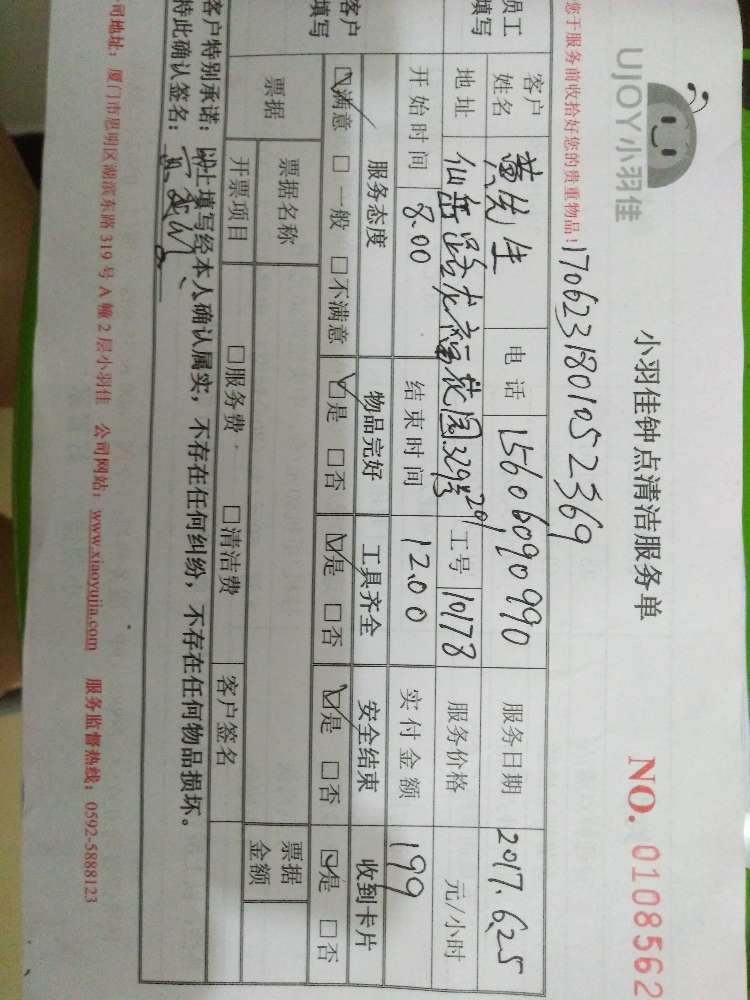 UJOY小羽佳
小羽佳钟点清洁服务单
NO. 0108562
您于服务前收拾好您的贵重物品!
1706231801052369
员工填写
客户姓名 黄先生 电话 15606090990 服务日期 2017.6.25
地址 仙岳路龙福花园329号201 工号 10178 服务价格 元/小时
开始时间 8.00 结束时间 12.00 实付金额 199
客户填写
服务态度 物品完好 工具齐全 安全结束 收到卡片
☑满意 □一般 □不满意 ☑是 □否 ☑是 □否 ☑是 □否 ☑是 □否
票据 票据名称 票据金额
开票项目 □服务费 □清洁费 客户签名
客户特别承诺:以上填写经本人确认属实,不存在任何纠纷,不存在任何物品损坏。
特此确认签名:
司地址:厦门市思明区湖滨东路319号A幢2层小羽佳 公司网站:www.xiaoyujia.com 服务监督热线:0592-5888123